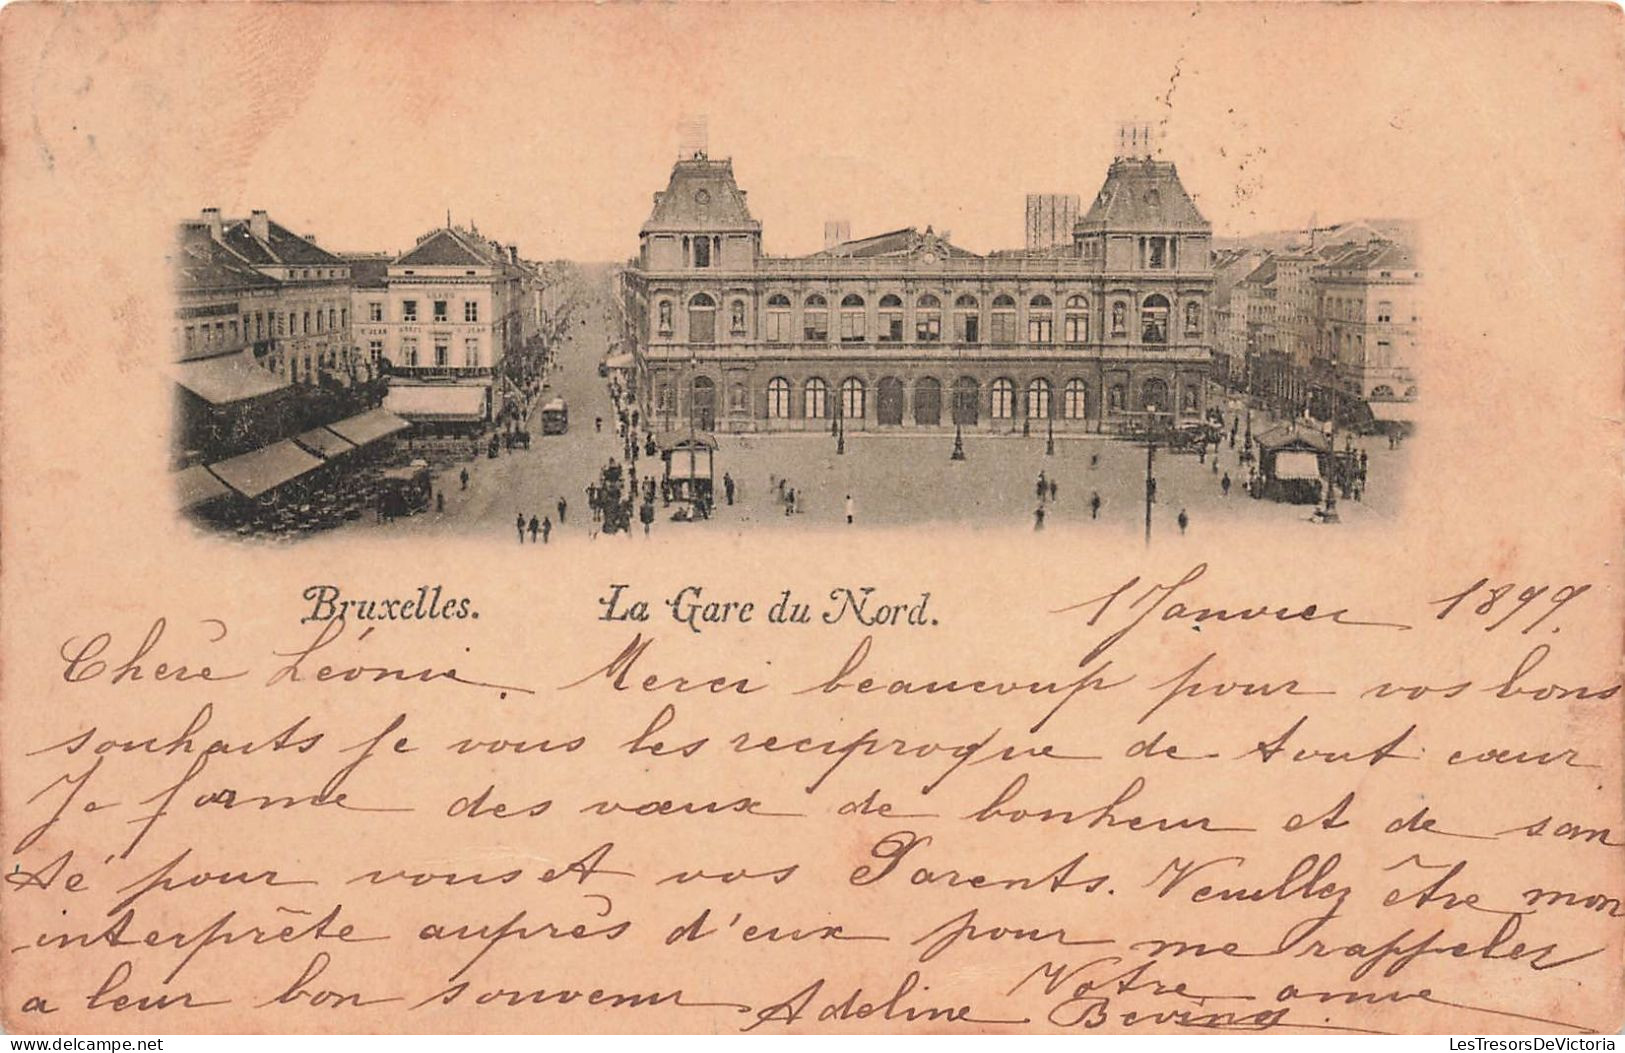 GRAND
St JEAN HOTEL St JEAN
Bruxelles. La Gare du Nord. 1 Janvier 1899.
Chère Léonie. Merci beaucoup pour vos bons
souhaits je vous les reciproque de tout cœur
Je forme des vœux de bonheur et de san
té pour vous et vos Parents. Veuillez être mon
interprête auprès d'eux pour me rappeler
a leur bon souvenir. Votre amie
Adeline
LesTresorsDeVictoria